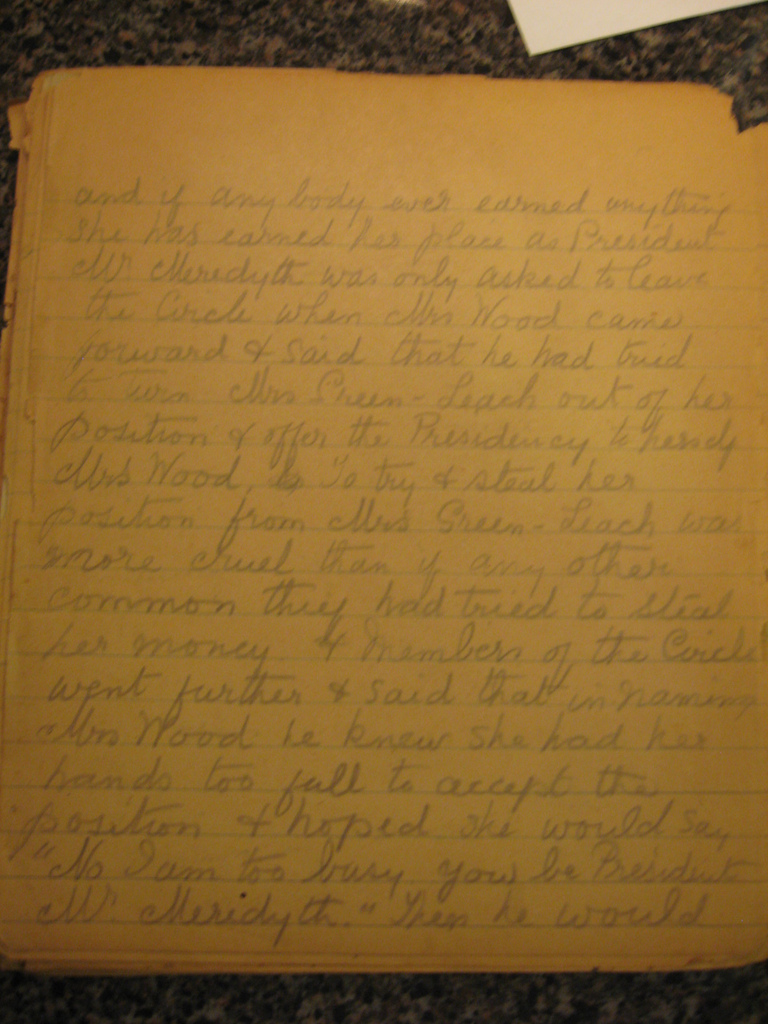 and if any body ever earned anything
she has earned her place as President
Mr Meredyth was only asked to leave
the Circle when Mrs Wood came
forward & said that he had tried
to turn Mrs Green-Leach out of her
position & offer the Presidency to herself
Mrs Wood, To try & steal her
position from Mrs Green-Leach was
more cruel than if any other
common thief had tried to steal
her money & members of the Circle
went further & said that in naming
Mrs Wood he knew she had her
hands too full to accept the
position & hoped she would say
"No I am too busy you be President
Mr Meredyth." Then he would